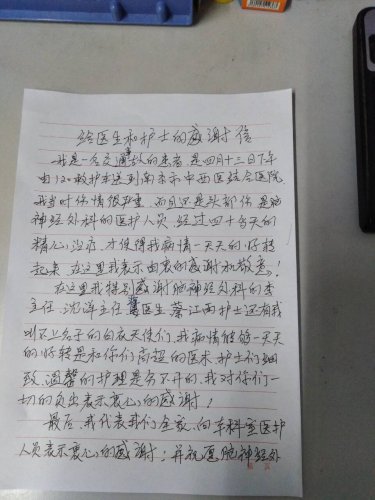 给医生和护士的感谢信
我是一名交通事故的患者,是四月十三日下午
由120救护车送到南京市中西医结合医院,
我当时伤情很严重,而且还是头部伤,是脑
神经外科的医护人员,经过四十多天的
精心治疗,才使得我病情一天天的好转
起来,在这里我表示由衷的感谢和敬意!
在这里我特别感谢脑神经外科的李
主任、沈洋主任 医生 蔡江雨护士还有我
叫不上名子的白衣天使们,我病情能够一天天
的好转是和你们高超的医术,护士们细
致、温馨的护理是分不开的,我对你们一
切的负出表示衷心的感谢!
最后,我代表我们全家,向本科室医护
人员表示衷心的感谢!并祝愿脑神经外